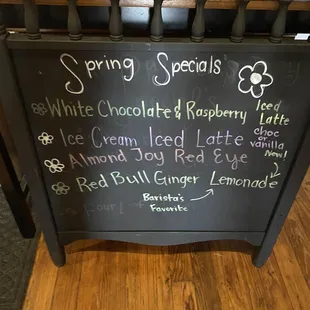 Spring Specials
White Chocolate & Raspberry Iced Latte
Ice Cream Iced Latte choc or vanilla
Almond Joy Red Eye New!
Red Bull Ginger Lemonade
Barista's
Favorite